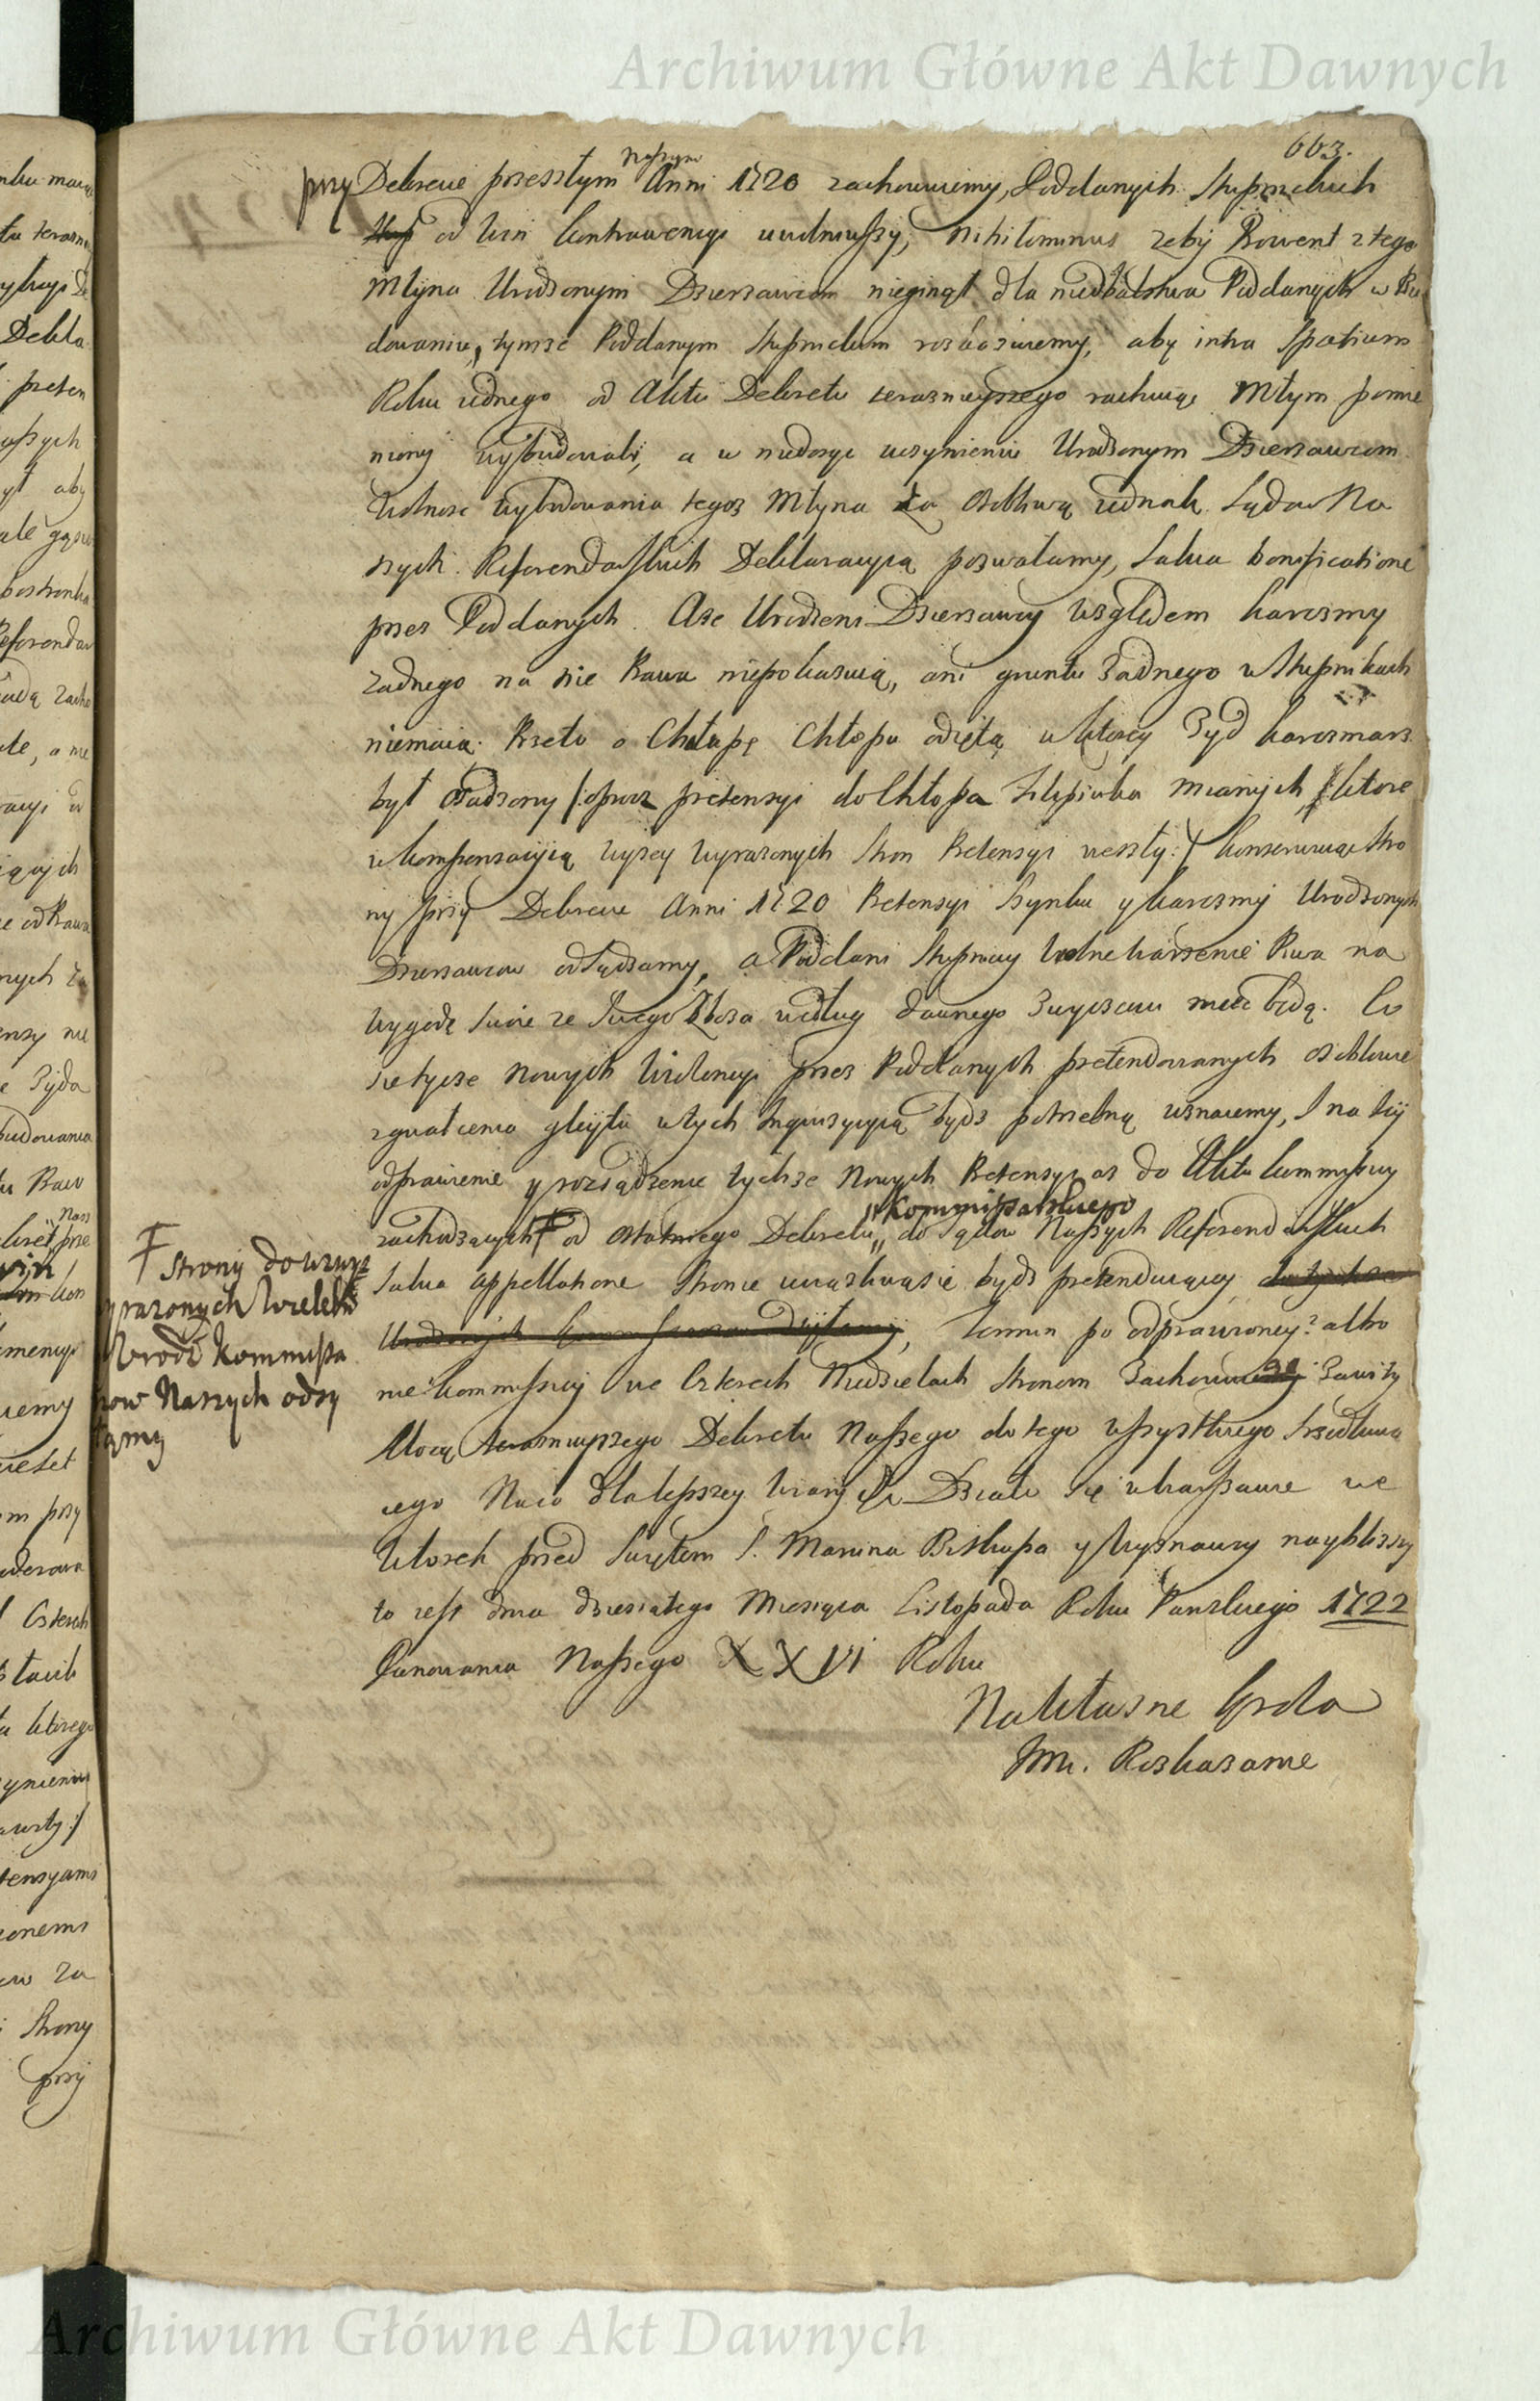 Archiwum Główne Akt Dawnych
663.
Naszym
przy Dekrecie przeszłym Anni 1720 zachowuiemy, Poddanych Stupnickich
od win kontrawencyi uwolniwszy, nihilominus zeby Prowent z tego
Młyna Urodzonym Dzierzawcom nieginął dla niedbalstwa Poddanych w Bu
dowaniu, tymze Poddanym Stupnickim roskazuiemy, aby intra spatium
Roku iednego od Aktu Dekretu teraznieyszego rachuiąc Młyn pomie
niony wybudowali, a w niedosyc uczynieniu Urodzonym Dzierzawcom
Wolnosc wybudowania tegoz Młyna za osobliwą iednak Sądow Na
szych Referendarskich Deklaracyią pozwalamy, salva bonificatione
przez Poddanych. Aze Urodzeni Dzierzawcy względem karczmy
zadnego na nie Prawa niepokazuią, ani gruntu zadnego w Stupnikach
niemaią. Przeto o Chałupę Chłopu odiętą w ktorey Zyd karczmarz
był osadzony /:oprocz pretensyi do Chłopa mianych, ktore
w kompensacyią wyzey wyrazonych stron Pretensyi weszły:/ konserwuiąc stro
ny przy Dekrecie Anni 1720 Pretensyi Szynku y karczmy Urodzonych
Dzierzawcow odsądzamy, a Poddani Stupniccy wolne warzenie Piwa na
wygodę swoie ze swego Zboza według dawnego zwyczaiu miec będą. Co
się tycze nowych Wiolencyi przez Poddanych pretendowanych osobliwie
zgwałcenia gleytu w tych Inquizycyią bydz potrzebną uznaiemy, I na tey
odprawienie y rozsądzenie tychze nowych Pretensyi az do Aktu kommissyi
"Kommissarskiego
zachodzących od ostatniego Dekretu" do Sądow Naszych Referendarskich
Ŧ strony do wzwyz
wyrazonych Wielebn
Urodz Kommissa
rzow Naszych odsy
łamy
salva appellatione stronie uciązliwą się bydz pretenduiącey
Termin po odprawioney? albo
nie kommissyi we Czterech Niedzielach stronom Zachowany Zawity
Mocą teraznieyszego Dekretu Naszego do tego wszystkiego
iego Na co dla lepszey wiary &c Działo się w Warszawie we
Wtorek przed Swiętem S. Marcina Biskupa y Wyznawcy nayblizszy
to iest dnia dziesiątego Miesiąca Listopada Roku Panskiego 1722
Panowania Naszego XXVI Roku
Na Własne Krola
Jmci. Roskazanie
Archiwum Główne Akt Dawnych